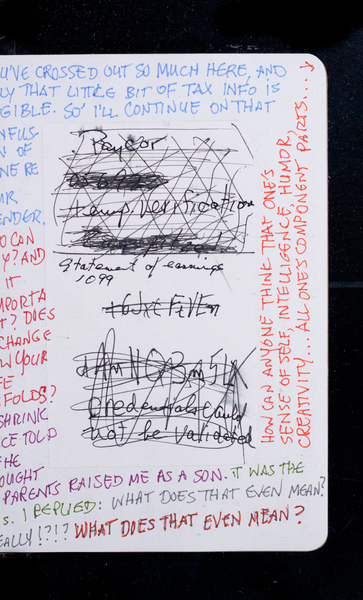 U'VE CROSSED OUT SO MUCH HERE, AND
LY THAT LITTLE BIT OF TAX INFO IS
GIBLE. SO I'LL CONTINUE ON THAT
NFUS-
N OF
NE RE
MR
ENDER.
O CAN
Y? AND
IT
MPORTA
T? DOES
CHANGE
W YOUR
FE
NFOLDS?
SHRINK
CE TOLD
HE
OUGHT
PARENTS RAISED ME AS A SON. IT WAS THE
S. I REPLIED: WHAT DOES THAT EVEN MEAN?
EALLY!?!? WHAT DOES THAT EVEN MEAN?
Paycor
temp verification
Statement of earnings
1099
credentials could
not be validated
HOW CAN ANYONE THINK THAT ONE'S
SENSE OF SELF, INTELLIGENCE, HUMOR,
CREATIVITY... ALL ONE'S COMPONENT PARTS....